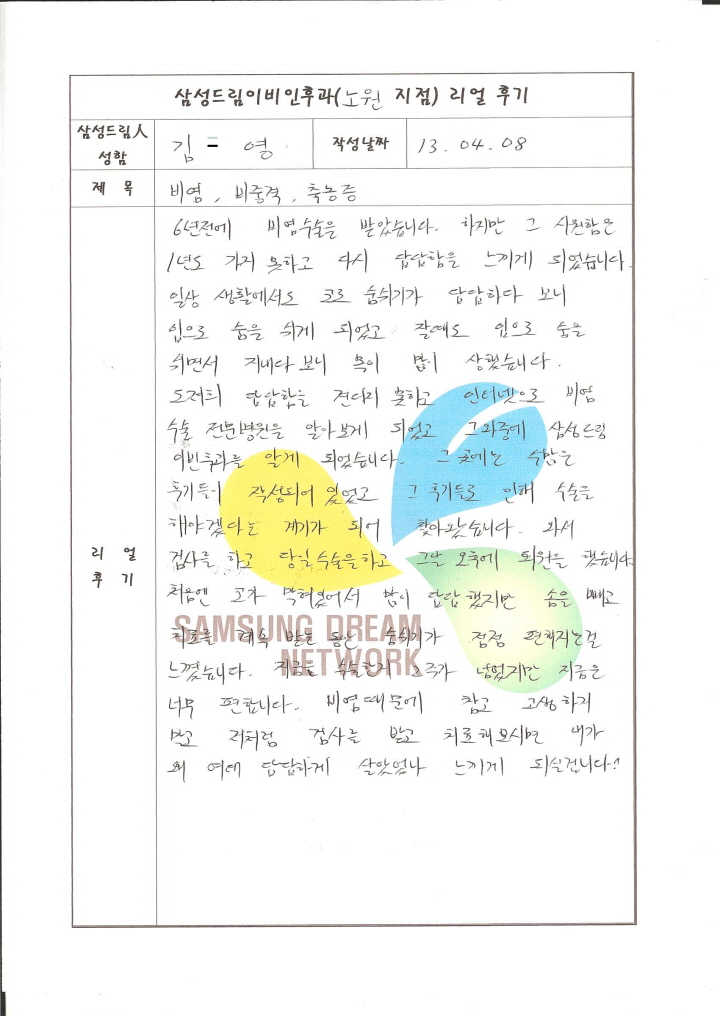 삼성드림이비인후과(노원 지점) 리얼 후기
삼성드림人 성함 김 - 영 작성날짜 13. 04. 08
제 목 비염, 비중격, 축농증
리 얼 후 기
6년전에 비염수술을 받았습니다. 하지만 그 시원함은
1년도 가지 못하고 다시 답답함을 느끼게 되었습니다.
일상 생활에서도 코로 숨쉬기가 답답하다 보니
입으로 숨을 쉬게 되었고 잘때도 입으로 숨을
쉬면서 지내다 보니 목이 많이 상했습니다.
도저히 답답함을 견디지 못하고 인터넷으로 비염
수술 전문병원을 알아보게 되었고 그와중에 삼성드림
이빈후과를 알게 되었습니다. 그 곳에는 수많은
후기들이 작성되어 있었고 그 후기들로 인해 수술을
해야겠다는 계기가 되어 찾아왔습니다. 와서
검사를 하고 당일수술을하고 그날 오후에 퇴원을 했습니다.
처음엔 코가 막혀있어서 많이 답답했지만 솜을 빼고
치료를 계속 받는 동안 숨쉬기가 점점 편해지는걸
느꼈습니다. 지금은 수술한지 2주가 넘었지만 지금은
너무 편합니다. 비염때문에 참고 고생하지
말고 저처럼 검사를 받고 치료해보시면 내가
왜 여태 답답하게 살았었나 느끼게 되실겁니다!
SAMSUNG DREAM
NETWORK